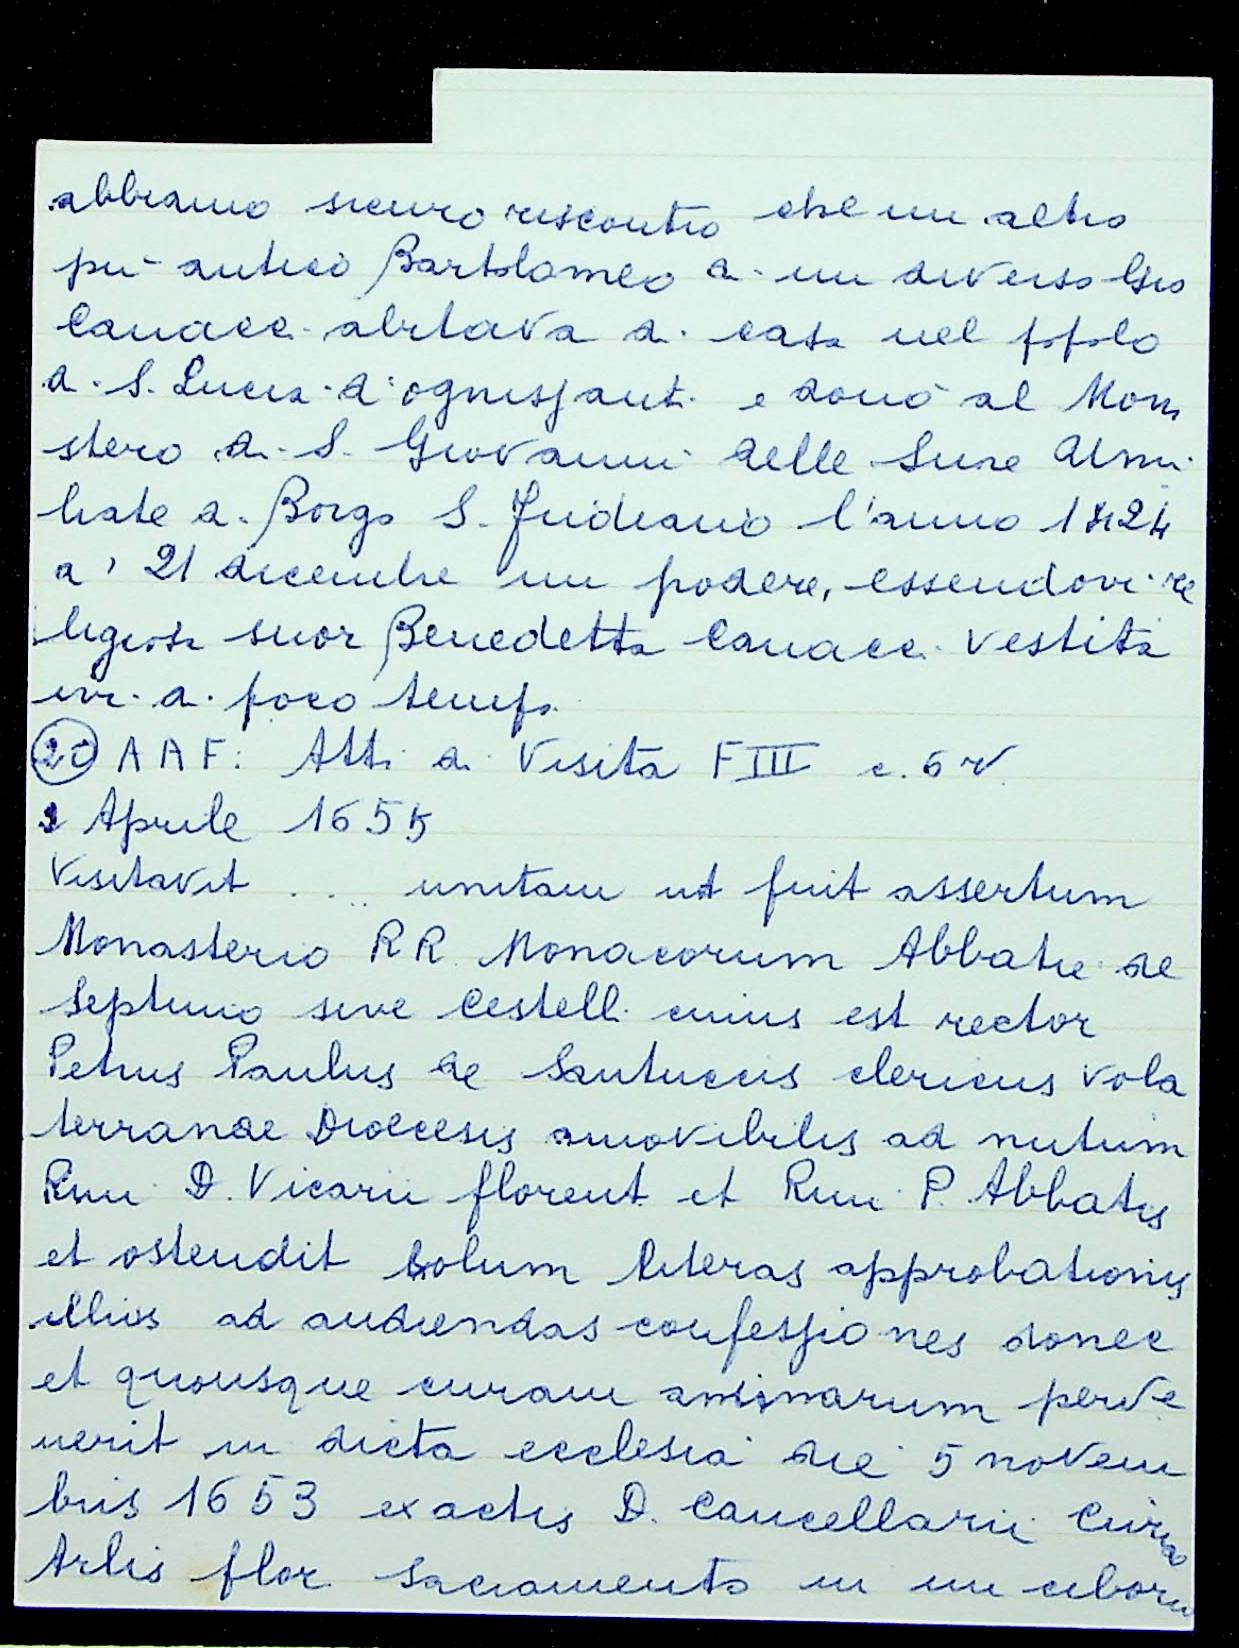 abbiamo sicuro riscontro che un altro
più antico Bartolomeo di un diverso Gio
Canacci abitava di casa nel popolo
di S. Lucia d'ognissanti e donò al Mona
stero di S. Giovanni delle Suore Umi
liate di Borgo S. Fridiano l'anno 1424
a' 21 dicembre un podere, essendovi re
ligiosa suor Benedetta Canacci vestita
ivi di poco tempo
20 AAF: Atti di Visita F III c. 6v
2 Aprile 1655
Visitavit .... unitam ut fuit assertum
Monasterio RR Monacorum Abbatie de
Septimo sive Cestelli cuius est rector
Petrus Paulus de Santuccis clericus Vola
terranae Diocesis amovibilis ad nutum
Rmi D. Vicarii florent et Rmi P. Abbatis
et ostendit solum literas approbationis
illius ad audiendas confessiones donec
et quousque curam animarum perve
nerit in dicta ecclesia die 5 novem
bris 1653 exactis D. Cancellarii Curia
Arlis flor Sacramento in un ciborio